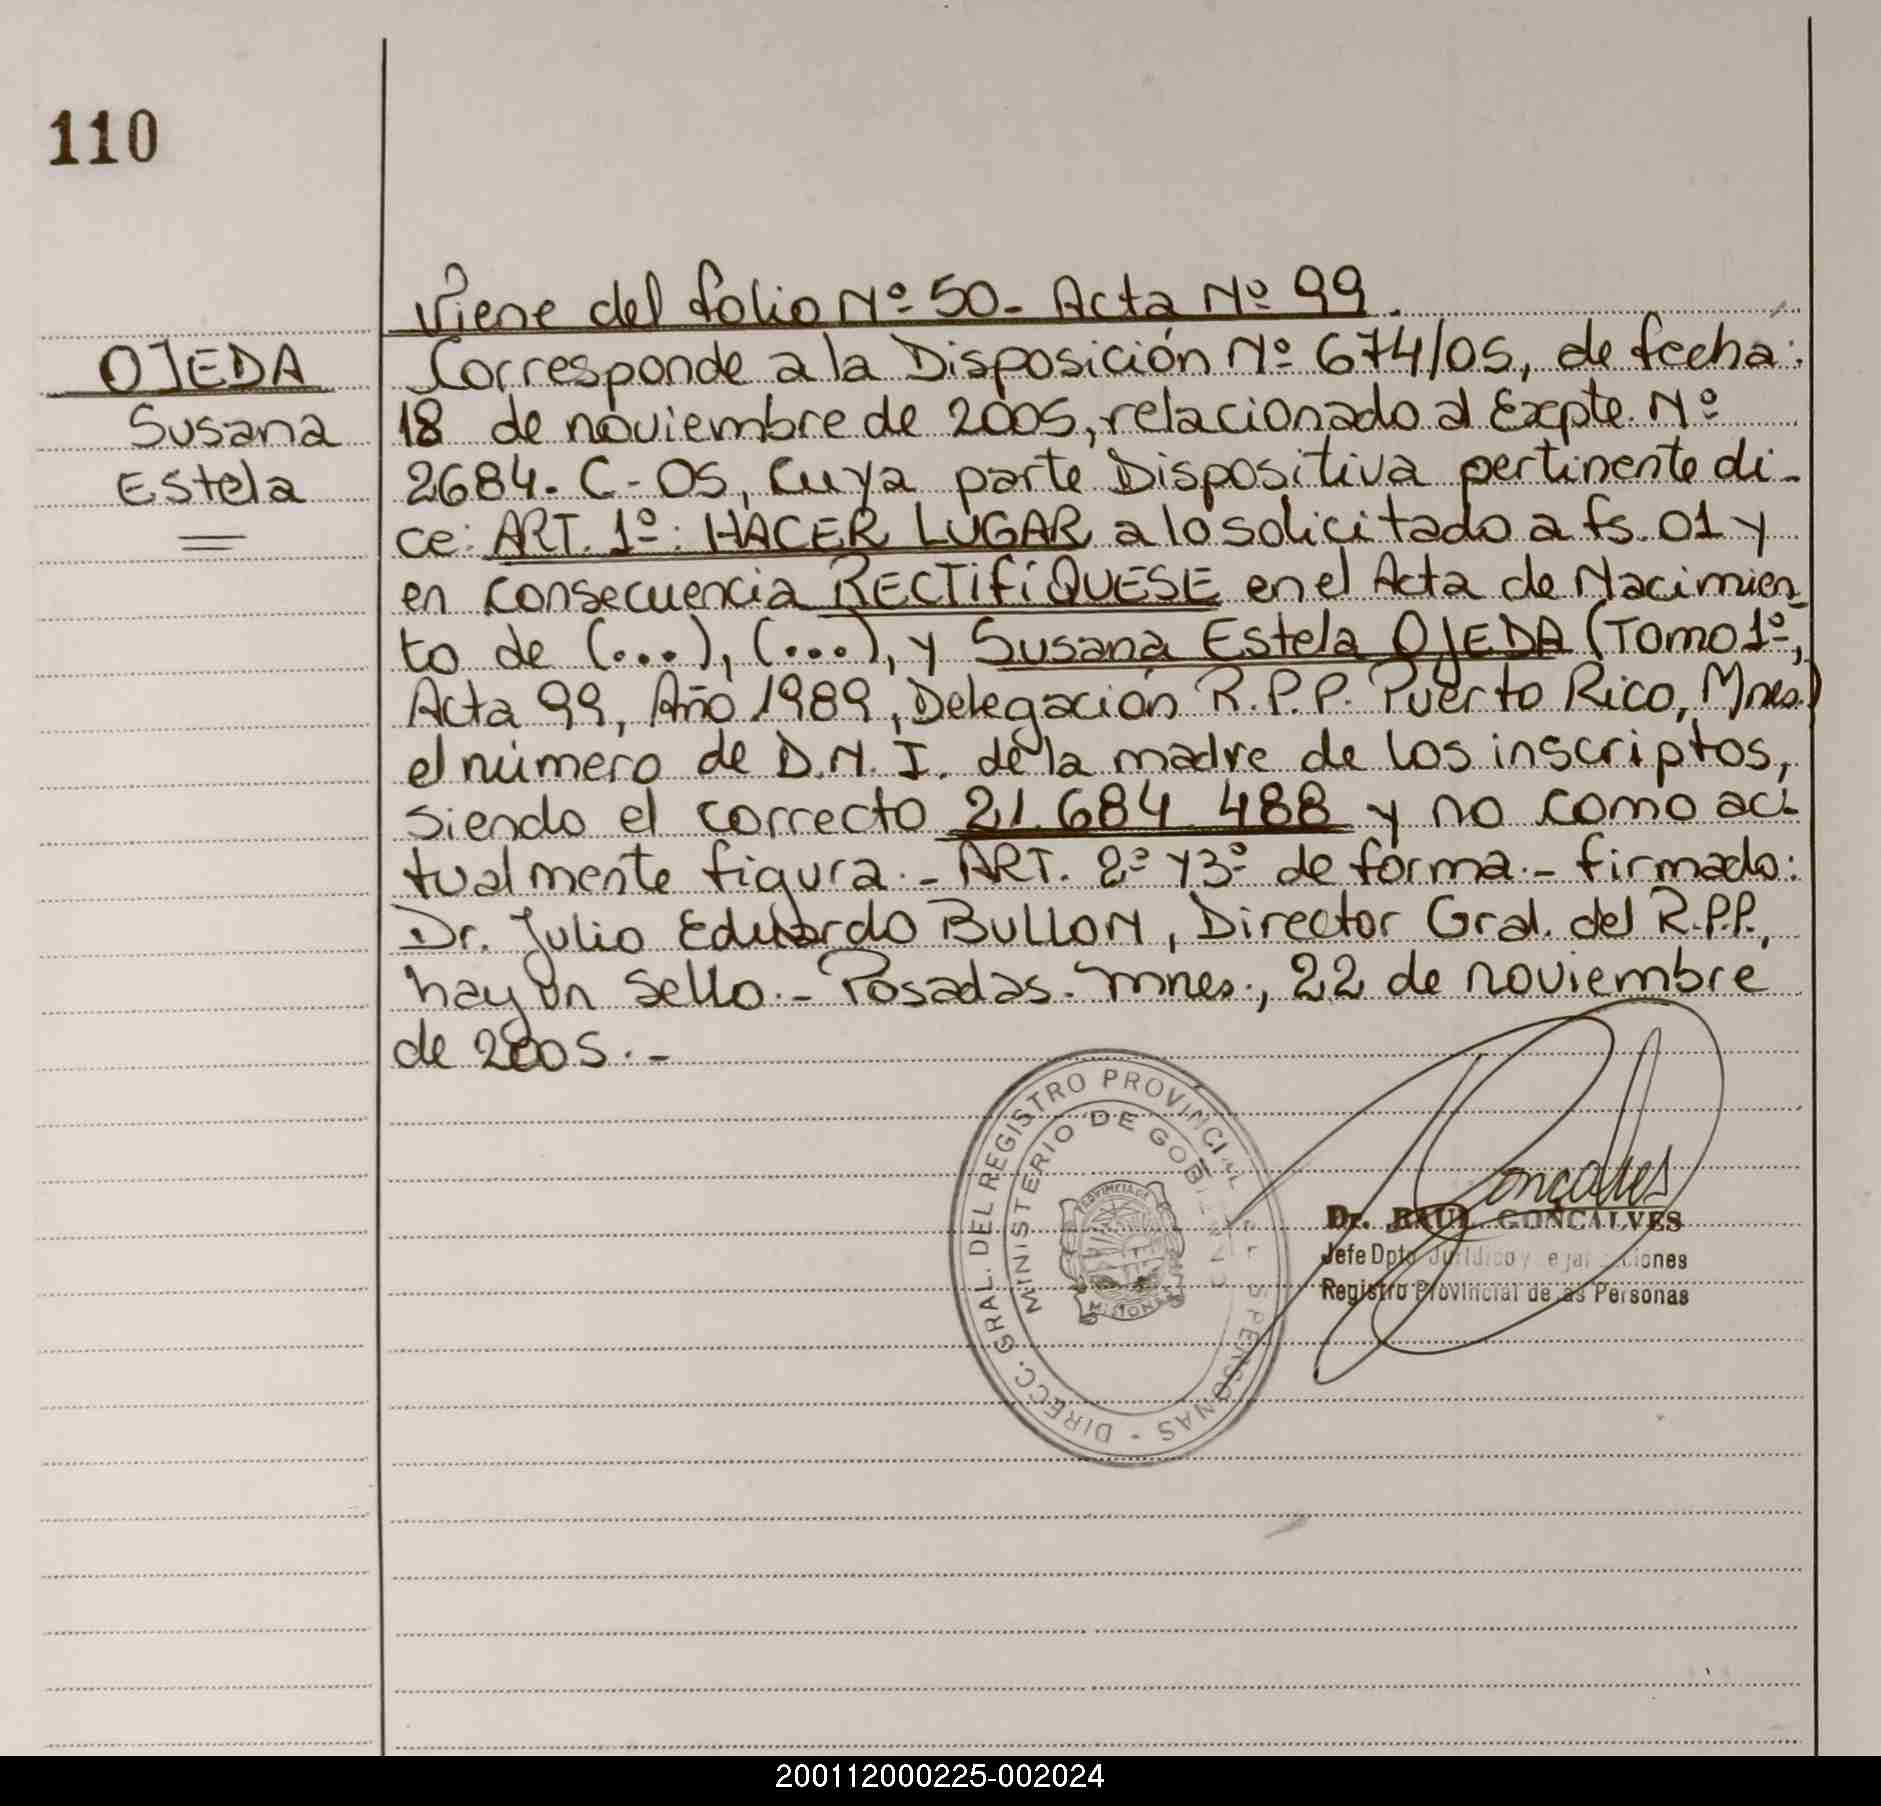 110
Viene del folio Nº 50 - Acta Nº 99.
OJEDA
Susana
Estela
Corresponde a la Disposición Nº 674/05, de fecha:
18 de noviembre de 2005, relacionado al Expte. Nº
2684. C - 05, Cuya parte Dispositiva pertinente di-
ce: ART. 1º: HACER LUGAR a lo solicitado a fs. 01 y
en consecuencia RECTIFÍQUESE en el Acta de Nacimien-
to de (...), (...), y Susana Estela OJEDA (Tomo 1º,
Acta 99, Año 1989, Delegación R.P.P. Puerto Rico, Mnes.)
el número de D.N.I. de la madre de los inscriptos,
siendo el correcto 21.684.488 y no como ac-
tualmente figura.- ART. 2º y 3º de forma.- firmado:
Dr. Julio Eduardo BULLON, Director Gral. del R.P.P.,
hay un sello.- Posadas. Mnes., 22 de noviembre
de 2005.-
DIRECC. GRAL. DEL REGISTRO PROVINCIAL PERSONAS
MINISTERIO DE GOBIERNO
PROVINCIA DE
MISIONES
Gonçalves
Dr. RAUL GONCALVES
Jefe Dpto. Jurídico y
Registro Provincial de las Personas
200112000225-002024